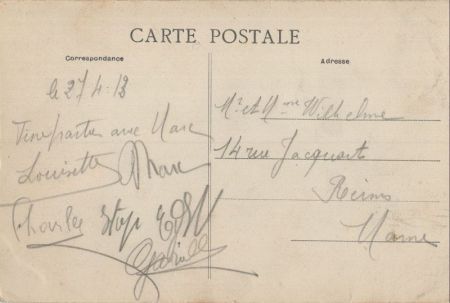 CARTE POSTALE
Correspondance
Adresse
le 27 4.13
avec Marc
Louisette Marc
Charles Stop
Gabrielle
Mr et Mme Wilhelme
14 rue Jacquart
Reims
Marne